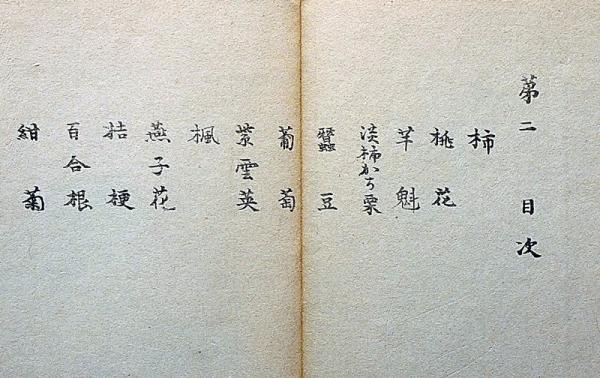 第二 目次
柿
桃花
芋魁
淡柿かち栗
蠶豆
葡萄
紫雲英
楓
燕子花
桔梗
百合根
紺菊